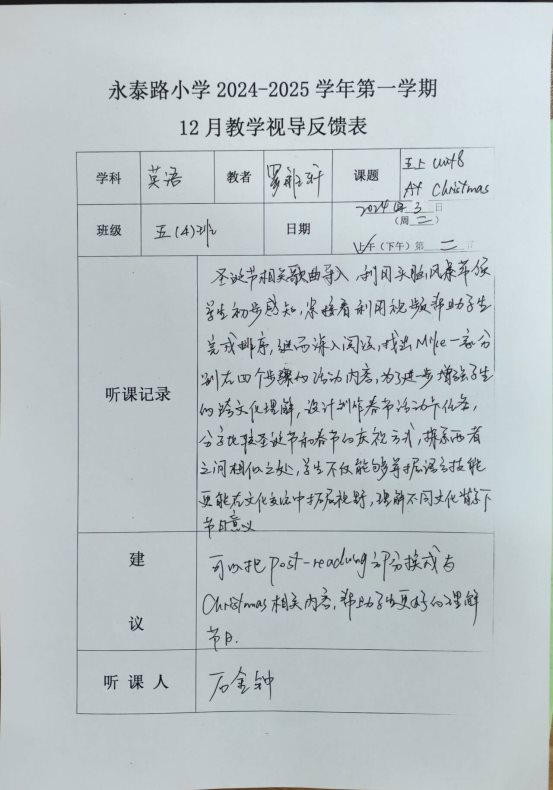 永泰路小学 2024-2025 学年第一学期
12 月教学视导反馈表
学科 英语 教者 课题 五上 unit8
At Christmas
班级 五(4)班 日期 2024 年 3 日
(周二)
上午(下午)第 二 节
听课记录
圣诞节相关歌曲导入,利用头脑风暴等使
学生初步感知,紧接着利用视频帮助学生
完成排序,继而深入阅读,找出 Mike 一家分
别在四个步骤的活动内容,为了进步增强学生
的跨文化理解,设计制作春节活动卡任务,
分享比较圣诞节和春节的庆祝方式,探索两者
之间相似之处,学生不仅能够掌握语言技能
更能在文化交流中拓展视野,理解不同文化背景下
节日意义
建
议
可以把 post-reading 部分换成与
Christmas 相关内容,帮助学生更好的理解
节日.
听 课 人 石金钟